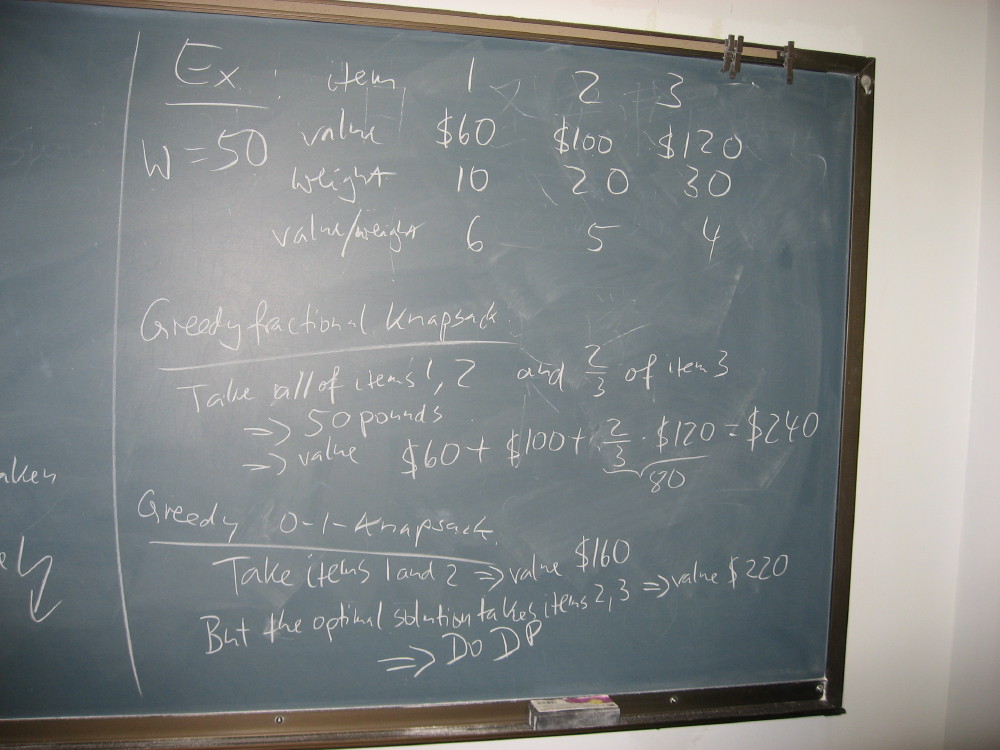 Ex : item 1 2 3
W = 50 value $60 $100 $120
weight 10 20 30
value/weight 6 5 4
Greedy fractional Knapsack
Take all of items 1, 2 and 2/3 of item 3
=> 50 pounds
=> value $60 + $100 + 2/3 · $120 = $240
80
aken
Greedy 0-1-Knapsack
Take items 1 and 2 => value $160
But the optimal solution takes items 2, 3 => value $220
=> Do DP